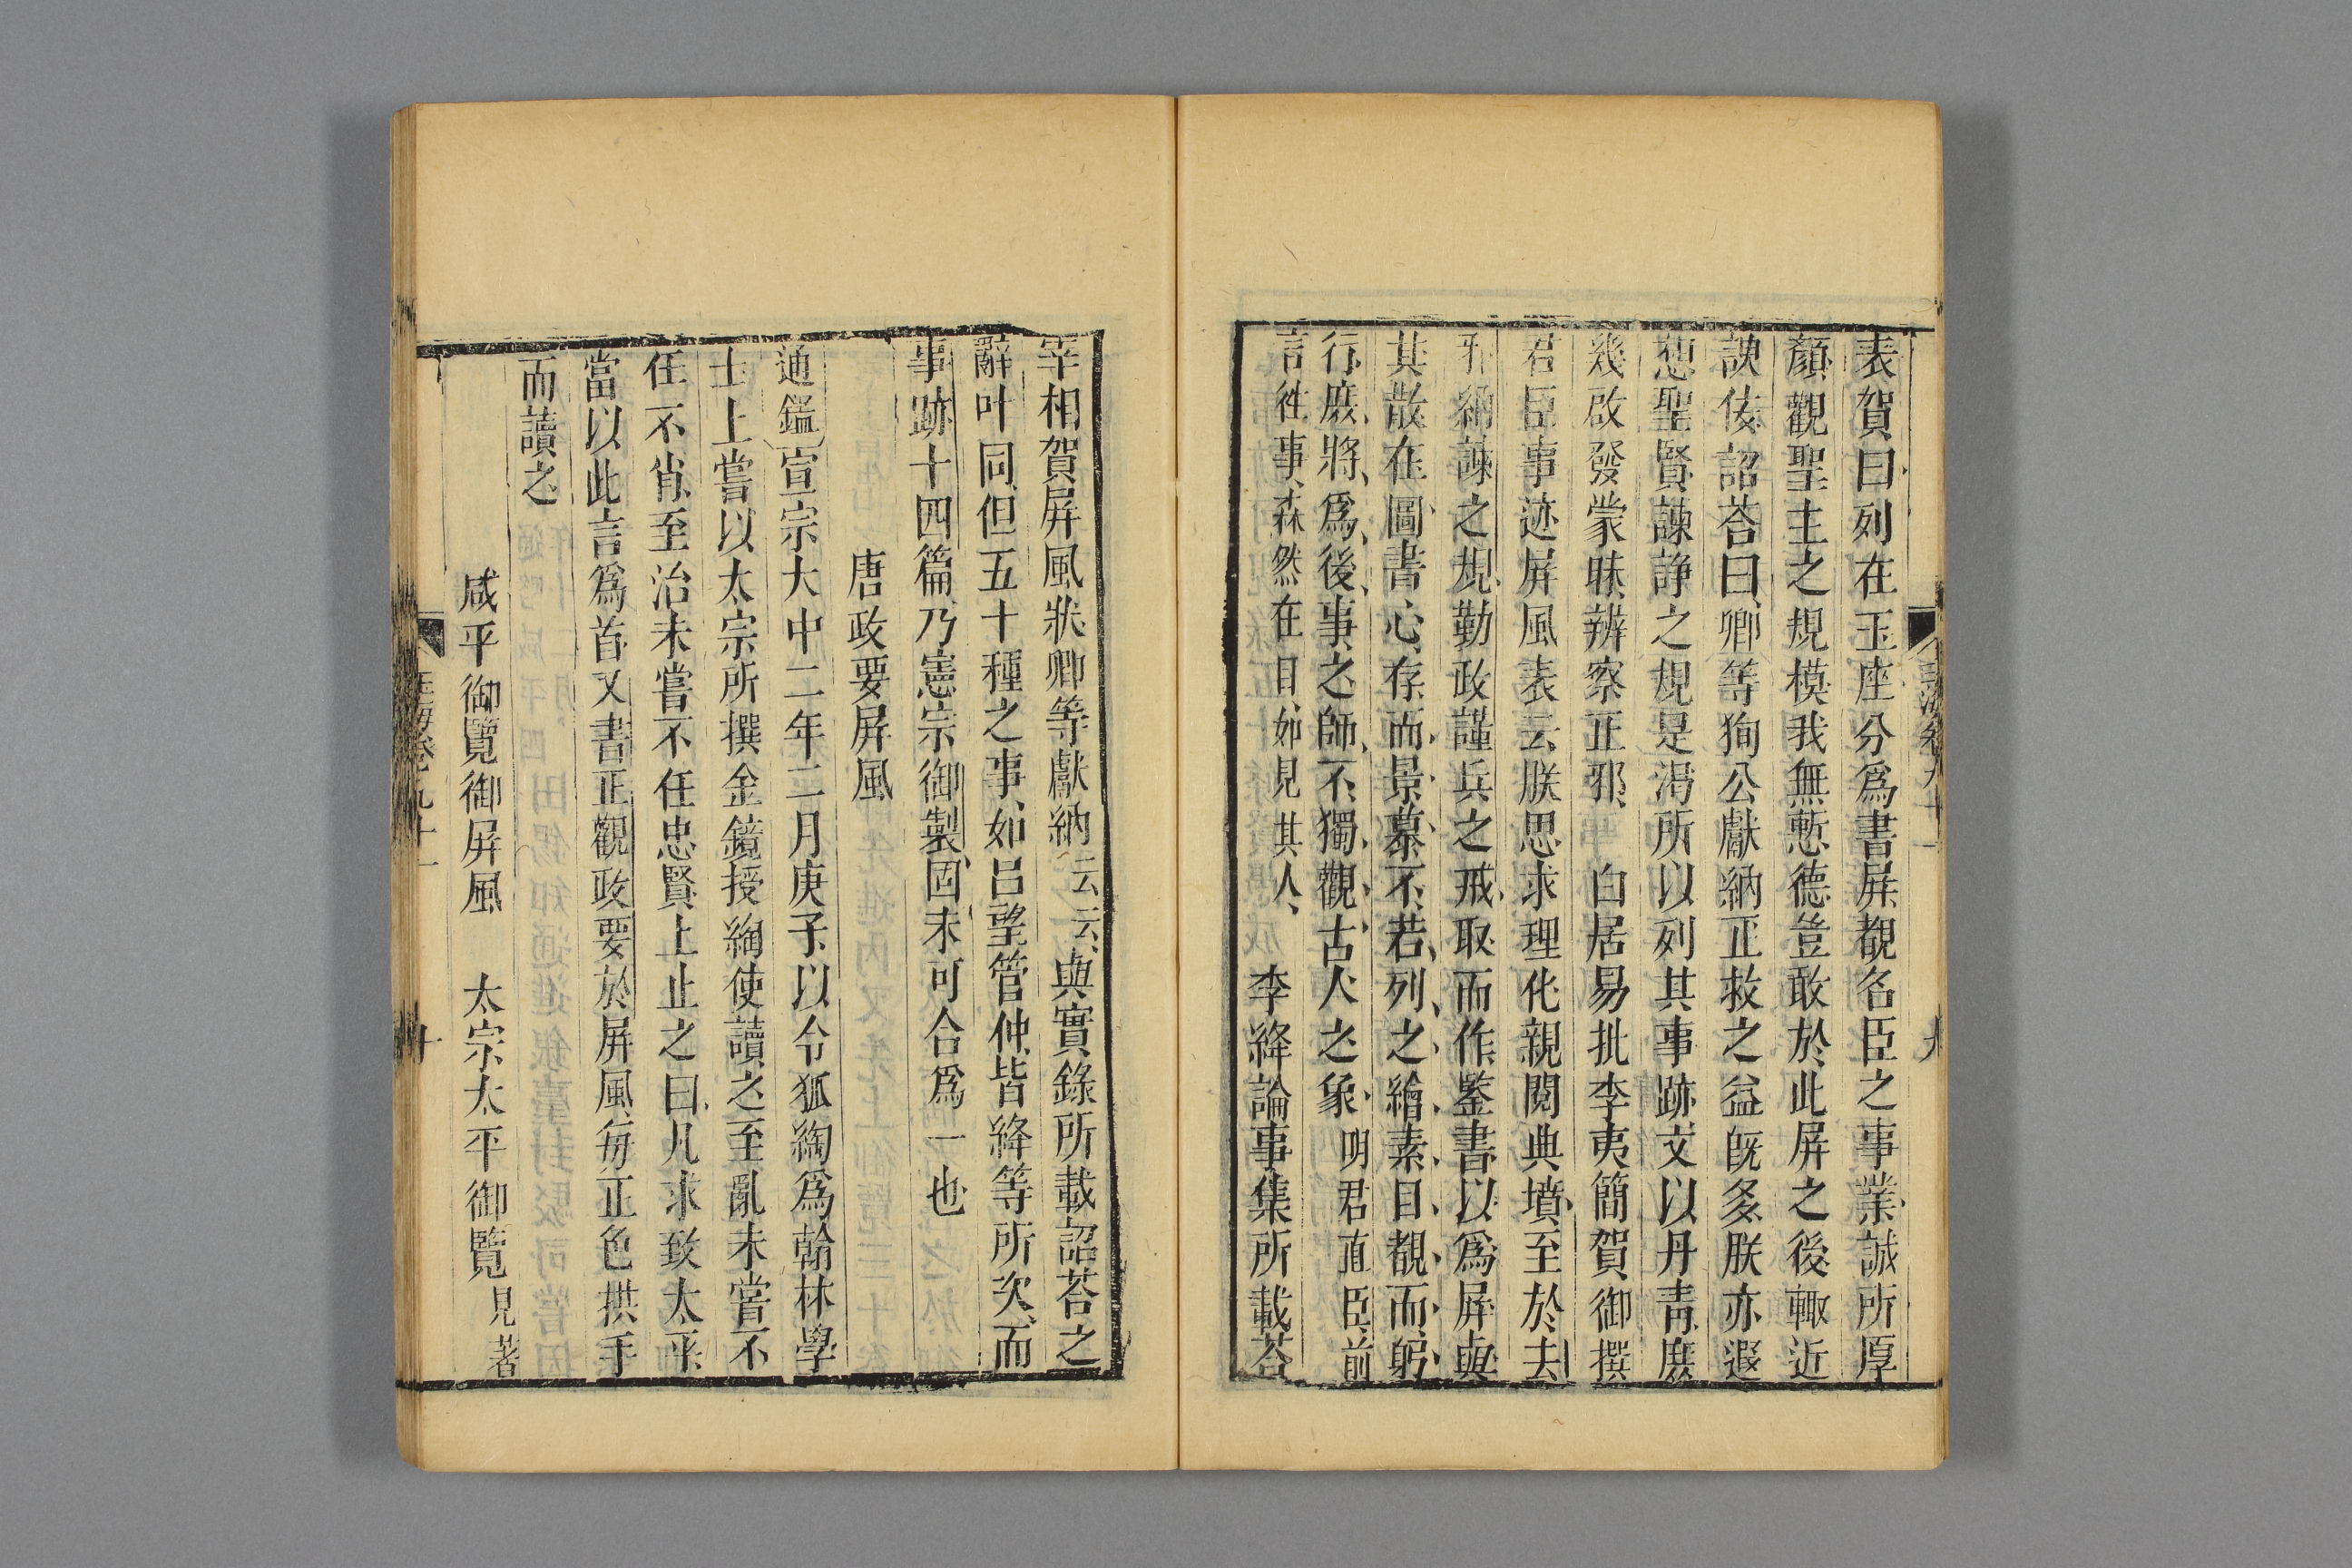 表賀曰列在玉座分為書屏覩名臣之事業誠所厚
顏觀聖主之規模我無慙德豈敢於此屏之後輙近
諛佞詔荅曰卿等狥公獻納正救之益旣多朕亦遐
想聖賢諫諍之規是渴所以列其事跡文以丹靑庶
幾啟發蒙昧辨察正邪 白居易批李夷簡賀御撰
君臣事迹屏風表云朕思求理化親閱典墳至於去
邪納諫之規勤政謹兵之戒取而作鑒書以為屏與
其散在圖書心存而景慕不若列之繪素目覩而躬
行庶將爲後事之師不獨觀古人之象 明君直臣前
言徃事森然在目如見其人 李絳論事集所載荅
宰相賀屏風狀卿等獻納云云與實錄所載詔荅之
辭叶同但五十種之事如呂望管仲皆絳等所次而
事跡十四篇乃憲宗御製固未可合爲一也
唐政要屏風
通鑑宣宗大中二年二月庚子以令狐綯爲翰林學
士上嘗以太宗所撰金鏡授綯使讀之至亂未嘗不
任不肖至治未嘗不任忠賢上止之曰凡求致太平
當以此言爲首又書正觀政要於屏風每正色拱手
而讀之
咸平御覽御屏風 太宗太平御覽見著
玉海卷九十一 十